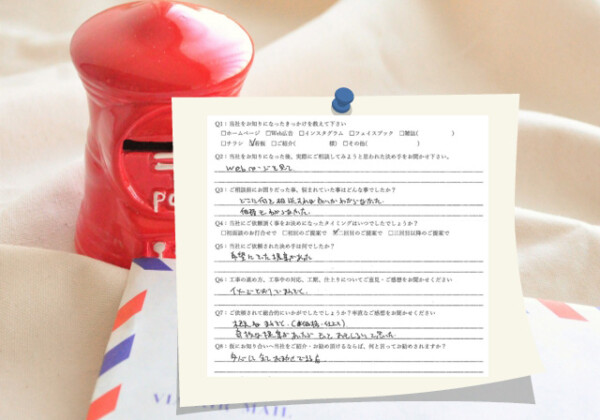 Q1：当社をお知りになったきっかけを教えて下さい
□ホームページ □Web広告 □インスタグラム □フェイスブック □雑誌(　　　)
□チラシ ☑看板 □ご紹介(　　　様) □その他(　　　)
Q2：当社をお知りになった後、実際にご相談してみようと思われた決め手をお聞かせ下さい。
Webページを見て
Q3：ご相談前にお困りだった事、悩まれていた事はどんな事でしたか？
どこに何を相談すれば良いかわからなかった
価格もわからなかった。
Q4：当社にご依頼頂く事をお決めになったタイミングはいつでしたでしょうか？
□初面談のお打合せで □初回のご提案で ☑二回目のご提案で □三回目以降のご提案で
Q5：当社にご依頼された決め手は何でしたか？
希望にそった提案があった
Q6：工事の進め方、工事中の対応、工期、仕上りについてご意見・ご感想をお聞かせください
イメージどおりでまんぞく
Q7：ご依頼されて総合的にいかがでしたでしょうか？率直なご感想をお聞かせください
大変 まんぞく
Q8：仮にお知り合いへ当社をご紹介・お勧め頂けるならば、何と言ってお勧めされますか？
安心して
PO
MAIL